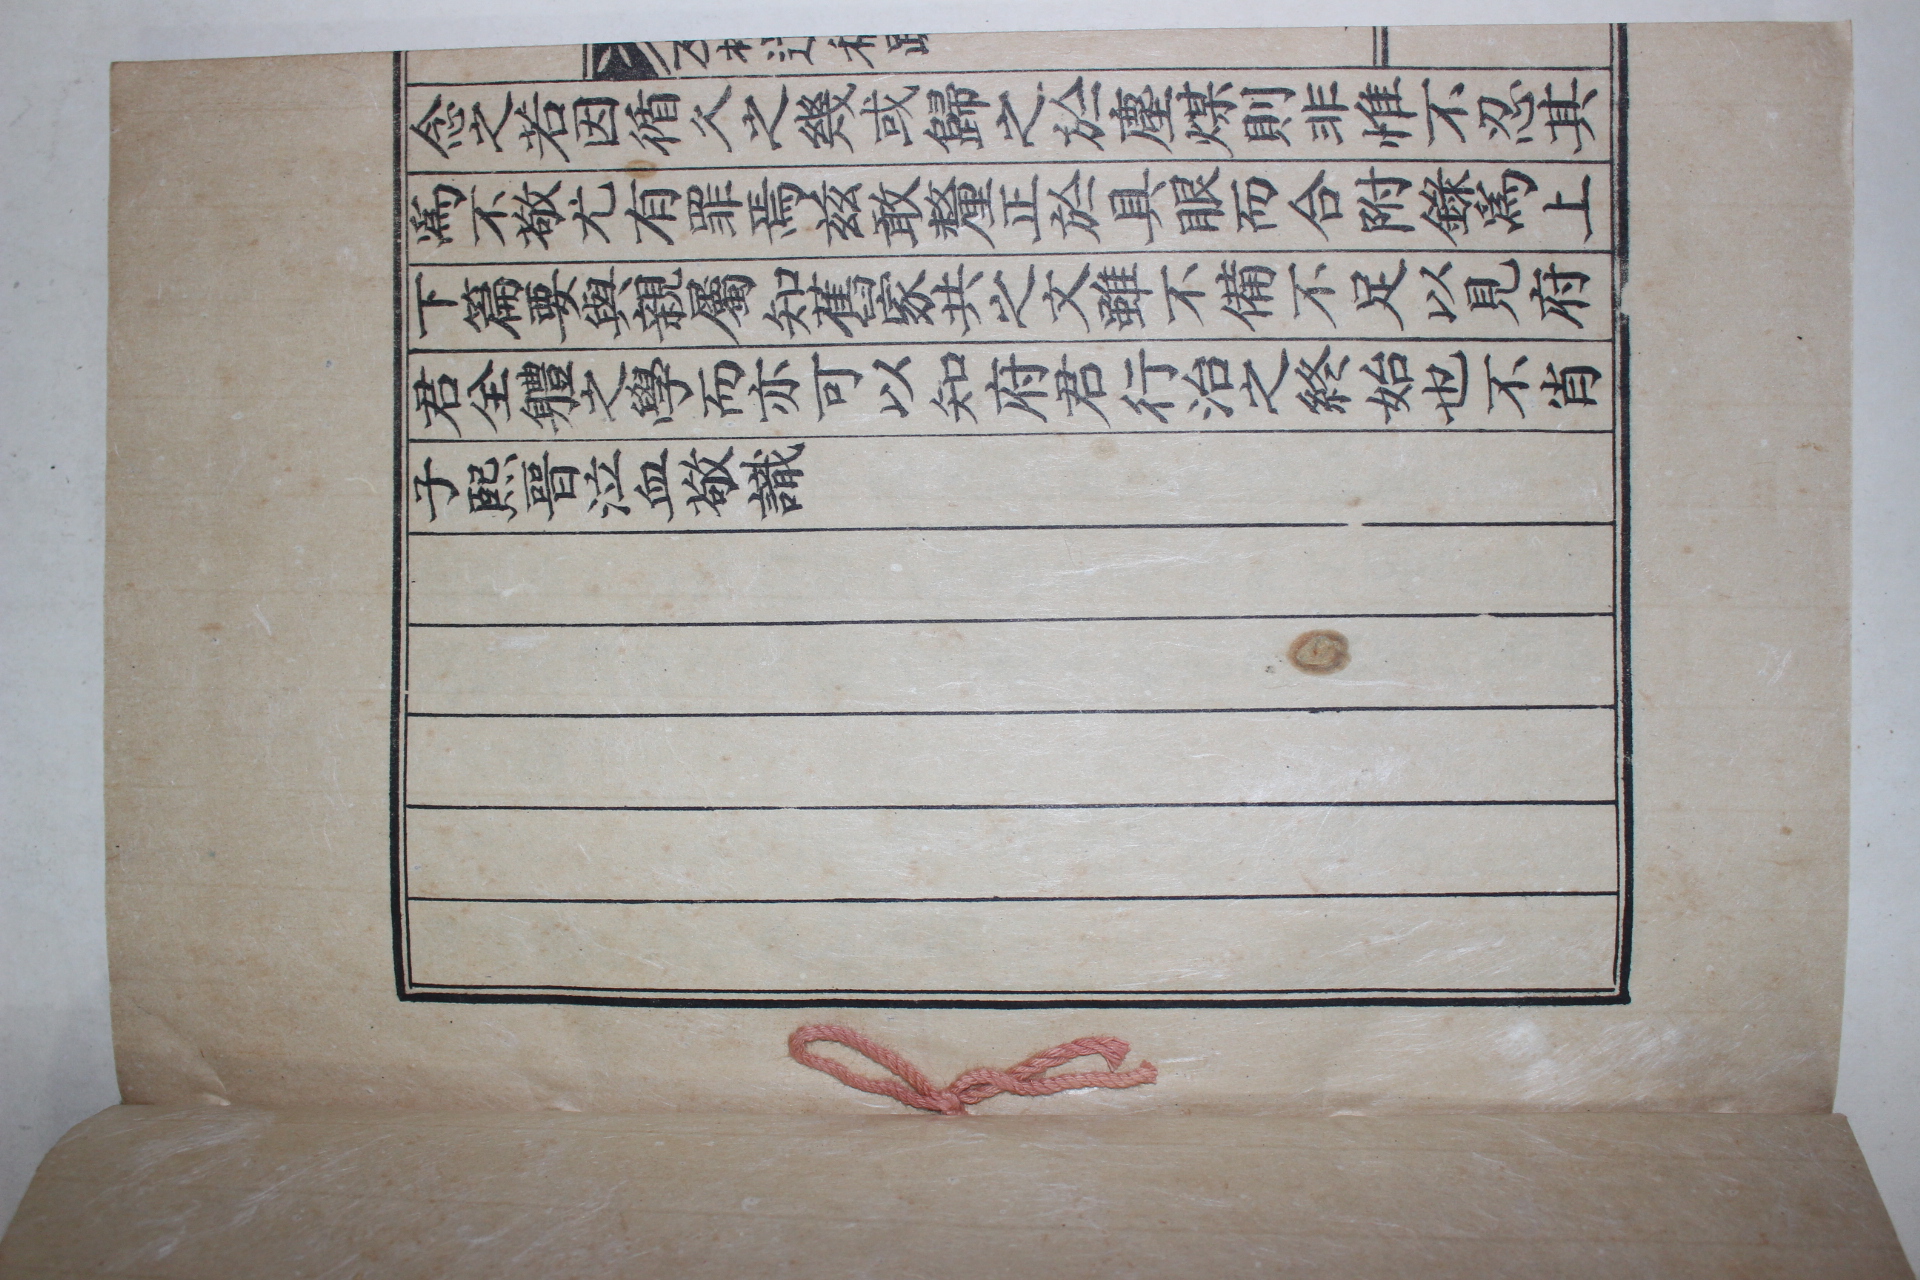 念之若因循久之幾或歸之於塵煤則非惟不忍其
爲不敬尤有罪焉玆敢釐正於具眼而合附錄爲上
下篇要與親屬知舊家共之文雖不備不足以見府
君全軆之學而亦可以知府君行治之終始也不肖
子熙晉泣血敬識